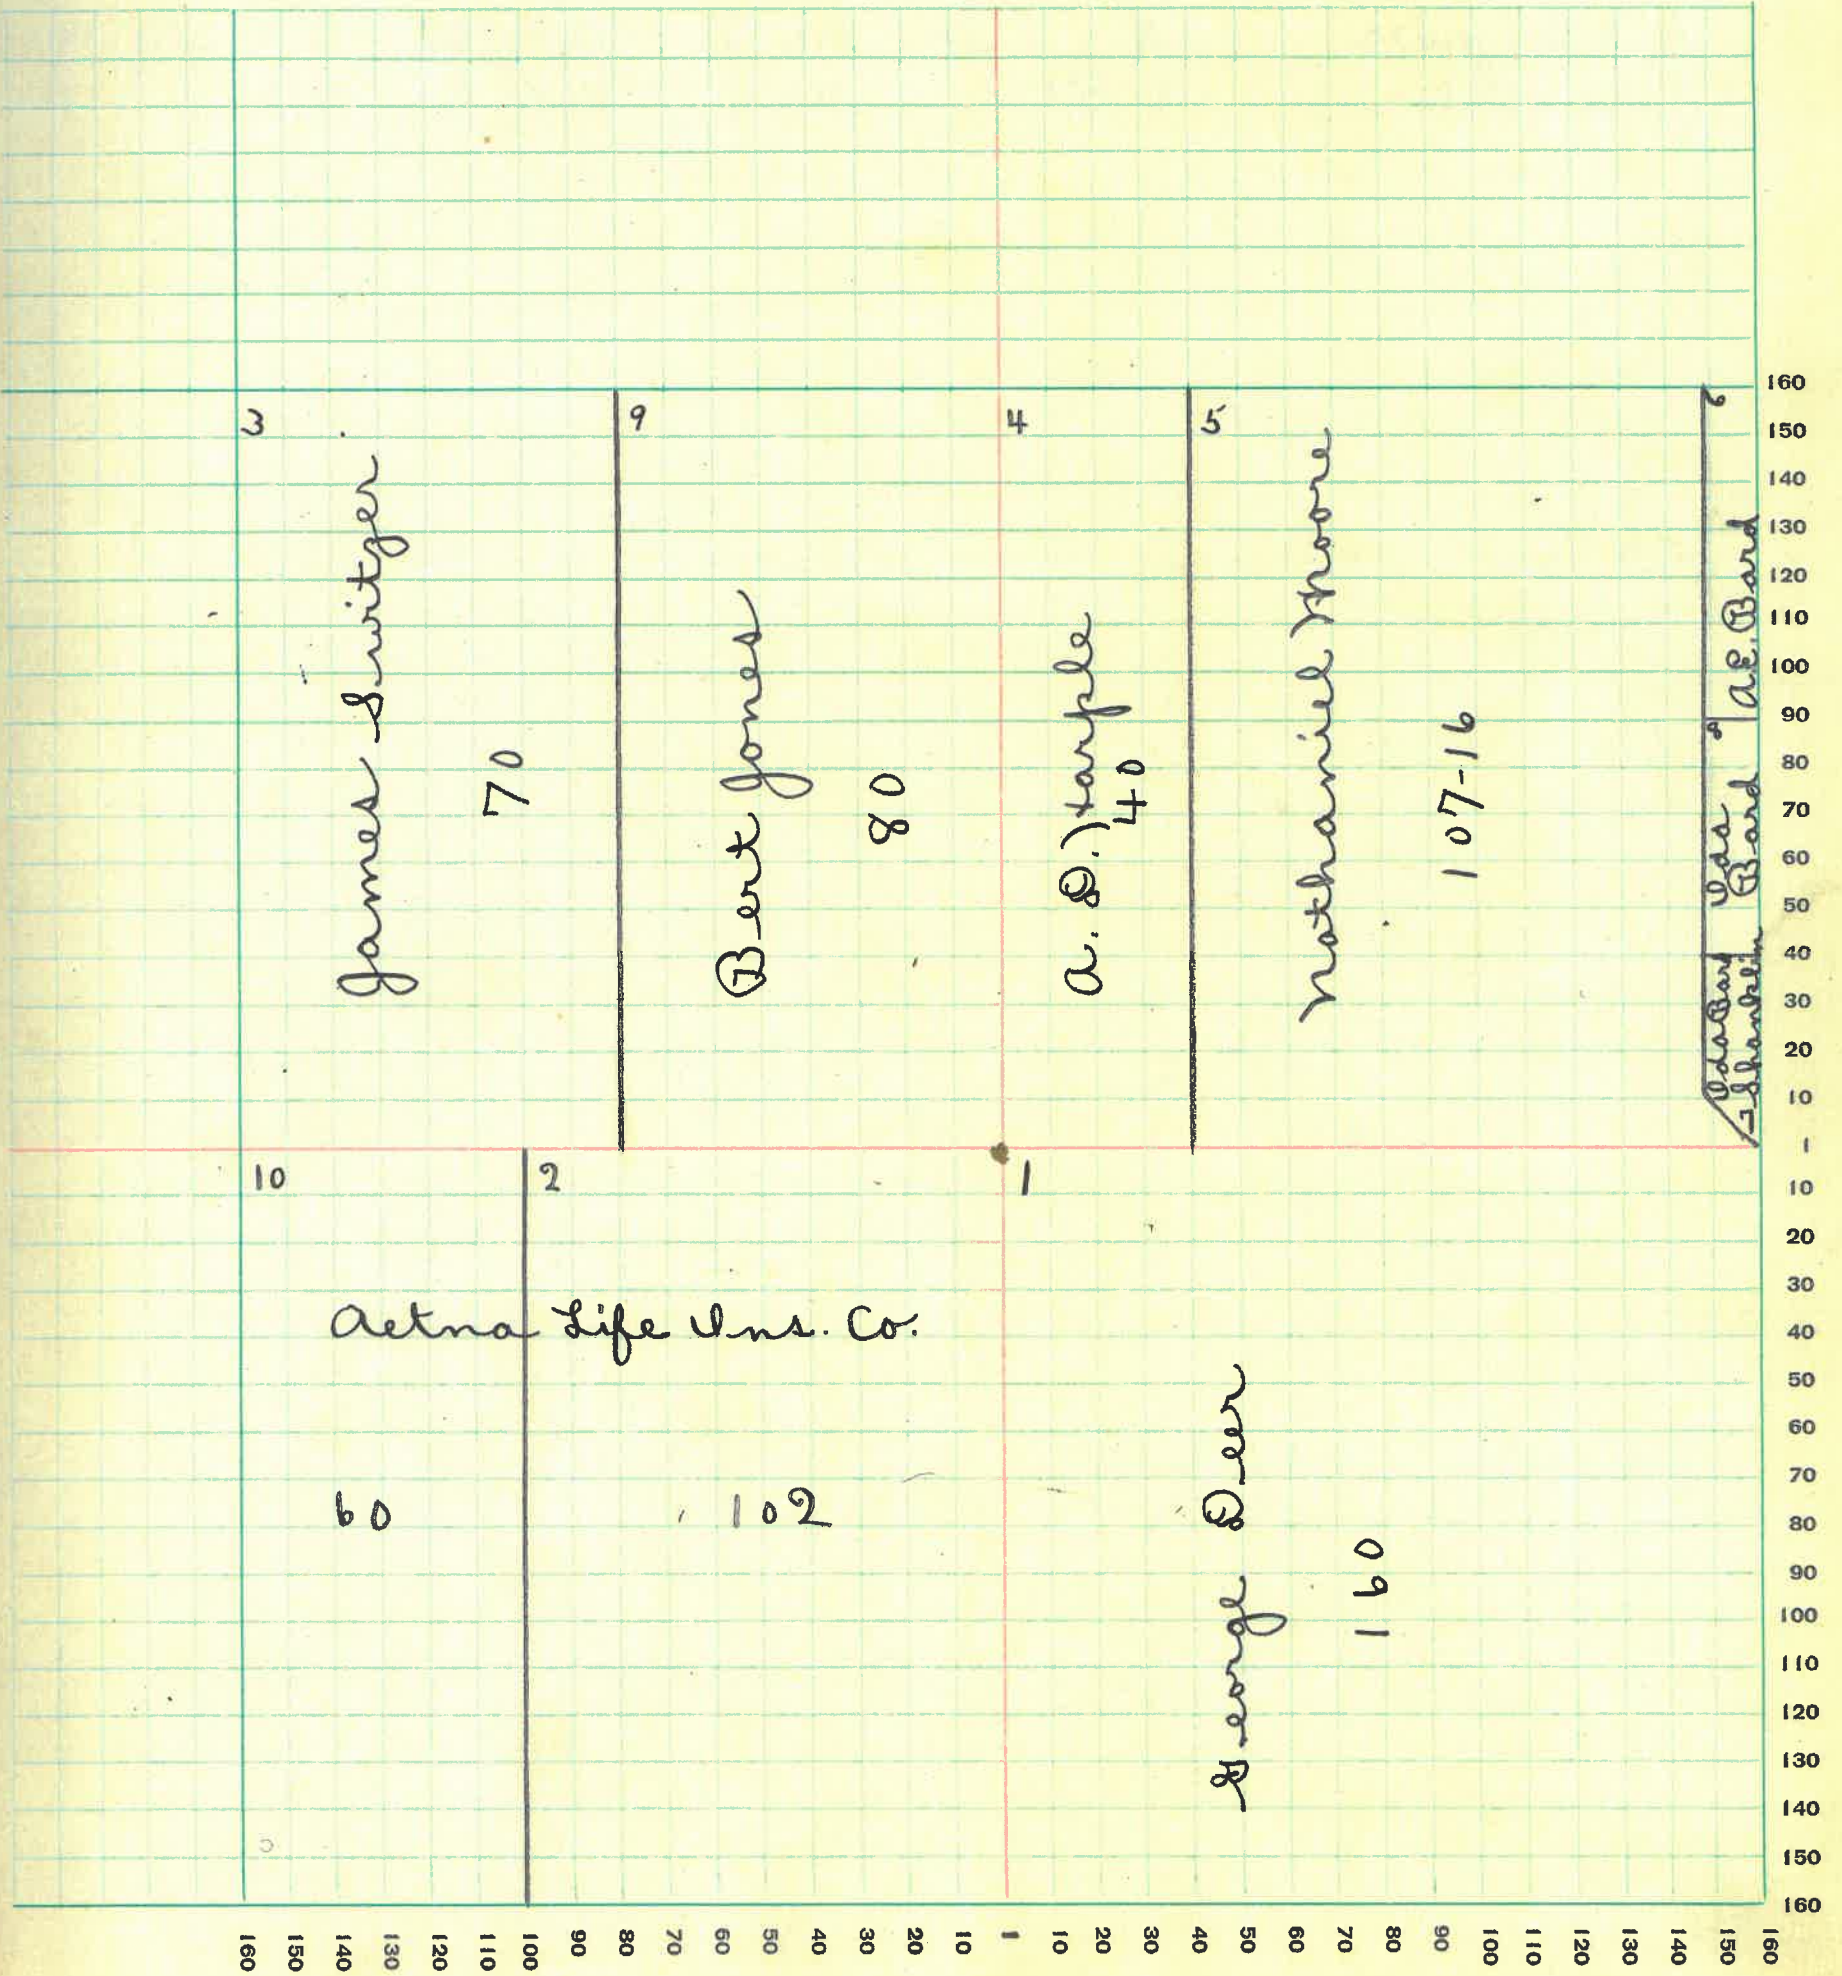 3
James Switzer
70
9
Bert Jones
80
4
A. D.
40
5
Nathaniel Moore
107-16
6
A.E. Bard
8
Ida
Bard
7
Shanklin
10
2
Aetna Life Ins. Co.
60
102
1
George Deer
160
160
150
140
130
120
110
100
90
80
70
60
50
40
30
20
10
1
10
20
30
40
50
60
70
80
90
100
110
120
130
140
150
160
160 150 140 130 120 110 100 90 80 70 60 50 40 30 20 10 1 10 20 30 40 50 60 70 80 90 100 110 120 130 140 150 160